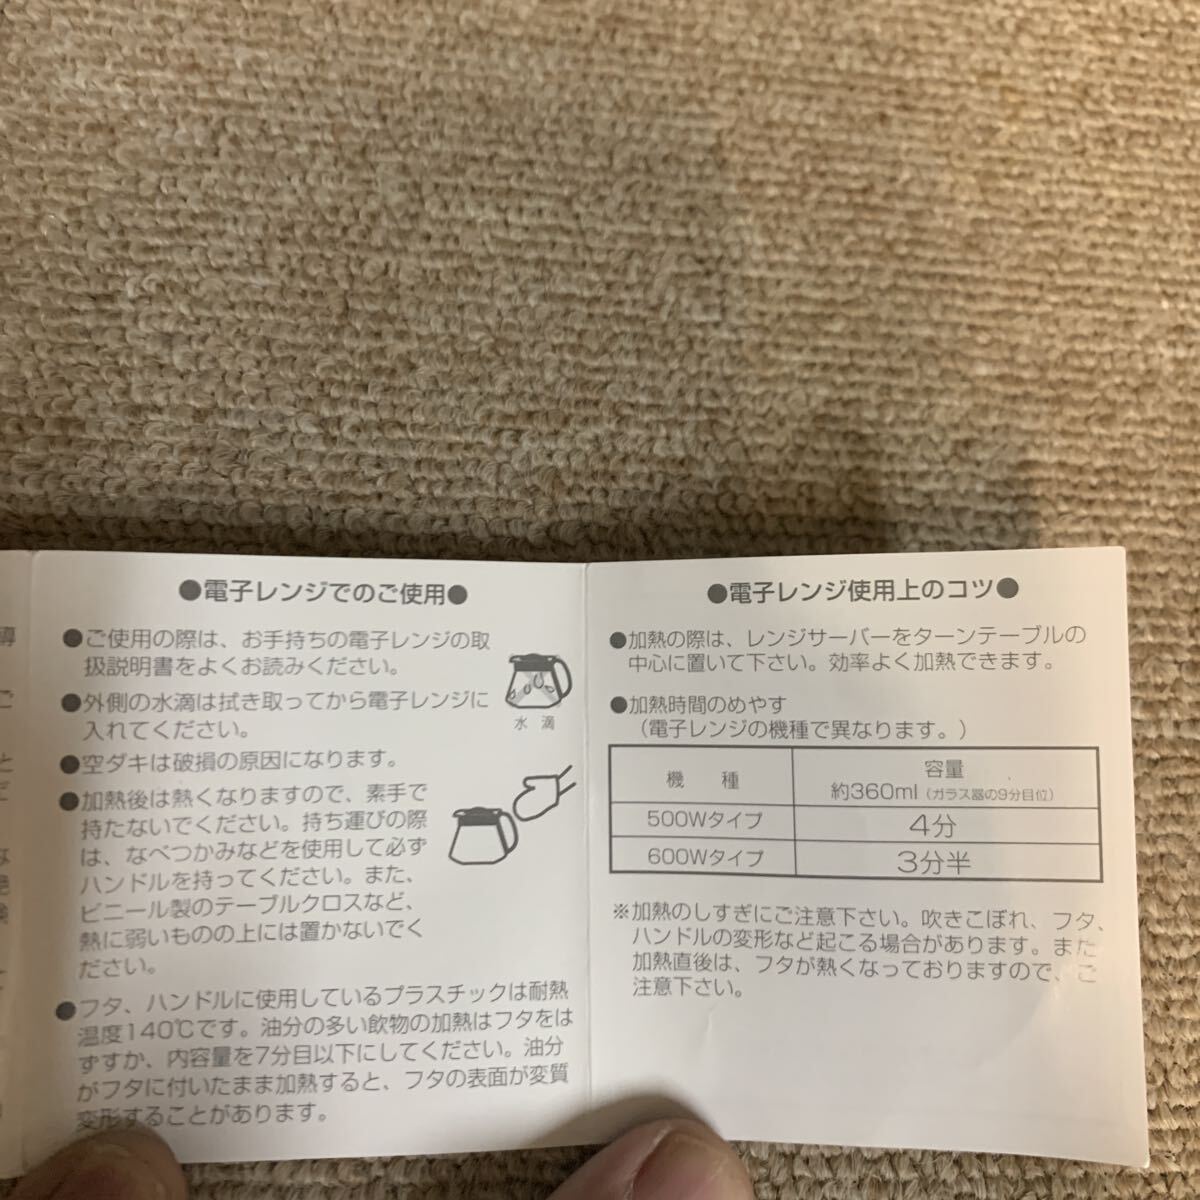 ●電子レンジでのご使用●
●ご使用の際は、お手持ちの電子レンジの取
扱説明書をよくお読みください。
●外側の水滴は拭き取ってから電子レンジに
入れてください。
水 滴
●空ダキは破損の原因になります。
●加熱後は熱くなりますので、素手で
持たないでください。持ち運びの際
は、なべつかみなどを使用して必ず
ハンドルを持ってください。また、
ビニール製のテーブルクロスなど、
熱に弱いものの上には置かないでく
ださい。
●フタ、ハンドルに使用しているプラスチックは耐熱
温度140℃です。油分の多い飲物の加熱はフタをは
ずすか、内容量を7分目以下にしてください。油分
がフタに付いたまま加熱すると、フタの表面が変質
変形することがあります。
●電子レンジ使用上のコツ●
●加熱の際は、レンジサーバーをターンテーブルの
中心に置いて下さい。効率よく加熱できます。
●加熱時間のめやす
（電子レンジの機種で異なります。）
機 種
容量
約360ml（ガラス器の9分目位）
500Wタイプ 4分
600Wタイプ 3分半
※加熱のしすぎにご注意下さい。吹きこぼれ、フタ、
ハンドルの変形など起こる場合があります。また
加熱直後は、フタが熱くなっておりますので、ご
注意下さい。